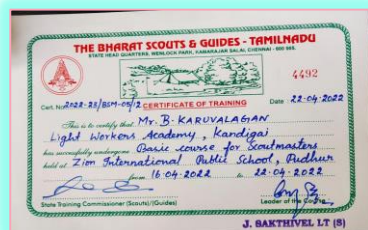 THE BHARAT SCOUTS & GUIDES - TAMILNADU
STATE HEAD QUARTERS, WENLOCK PARK, KAMARAJAR SALAI, CHENNAI - 600 005.
4492
Cert. No. 2022-23/BSM-05/12 CERTIFICATE OF TRAINING Date 22-04-2022
This is to certify that Mr. B. KARUVALAGAN
Light Workers Academy, Kandigai
has successfully undergone Basic course for Scoutmasters
held at Zion International Public School, Pudhur
from 16-04-2022 to 22-04-2022
State Training Commissioner (Scouts)/(Guides) Leader of the Course
J. SAKTHIVEL LT (S)